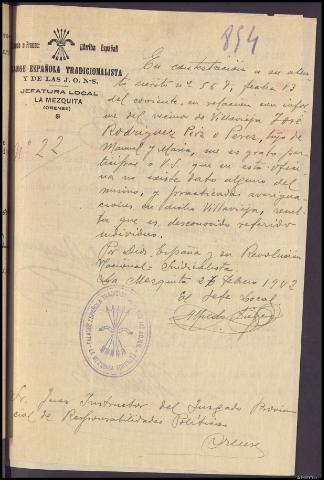 854
Saludo a Franco: ¡Arriba España!
FALANGE ESPAÑOLA TRADICIONALISTA
Y DE LAS J. O. N-S.
JEFATURA LOCAL
LA MEZQUITA
(ORENSE)
Nº 22
En contestación a su aten-
to escrito nº 567, fecha 13
del corriente, en relación con infor
me del vecino de Villavieja José
Rodríguez Piz o Pérez, hijo de
Manuel y María, me es grato par-
ticipar a V.S. que en esta ofici
na no existe dato alguno del
mismo, y practicadas averigua
ciones en dicha Villavieja, resul
ta que es desconocido referido
individuo.
Por Dios, España y su Revolución
Nacional-Sindicalista
La Mezquita 26 Febrero 1942
El Jefe Local
Alfredo
FALANGE ESPAÑOLA TRADICIONALISTA Y DE LAS J.O.N.S.
LA MEZQUITA (ORENSE)
Sr. Juez Instructor del Juzgado Provin
cial de Responsabilidades Políticas
Orense